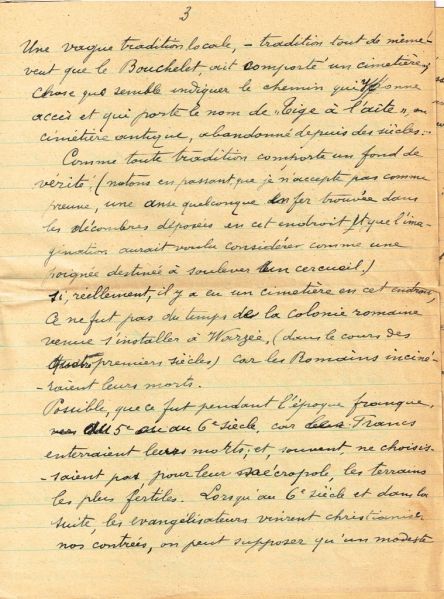 3
Une vague tradition locale, – tradition tout de même –
veut que le Bouchelet, ait comporté un cimetière,
chose que semble indiquer le chemin qui y donne
accès et qui porte le nom de "Tige à l'aîte", ou
cimetière antique, abandonné depuis des siècles.
Comme toute tradition comporte un fond de
vérité, (notons en passant que je n'accepte pas comme
preuve, une anse quelconque en fer trouvée dans
les décombres déposées en cet endroit et que l'ima-
gination aurait voulu considérer comme une
poignée destinée à soulever un cercueil.)
si, réellement, il y a eu un cimetière en cet endroit,
ce ne fut pas du temps de la colonie romaine
venue s'installer à Warzée, (dans le cours des
quatre premiers siècles) car les Romains inciné-
-raient leurs morts.
Possible, que ce fut pendant l'époque franque,
vers du 5e ou au 6e siècle, car les Francs
enterraient leurs morts, et, souvent, ne choisis-
-saient pas, pour leur nécropole, les terrains
les plus fertiles. Lorsqu'au 6e siècle et dans la
suite, les évangélisateurs vinrent christianiser
nos contrées, on peut supposer qu'un modeste